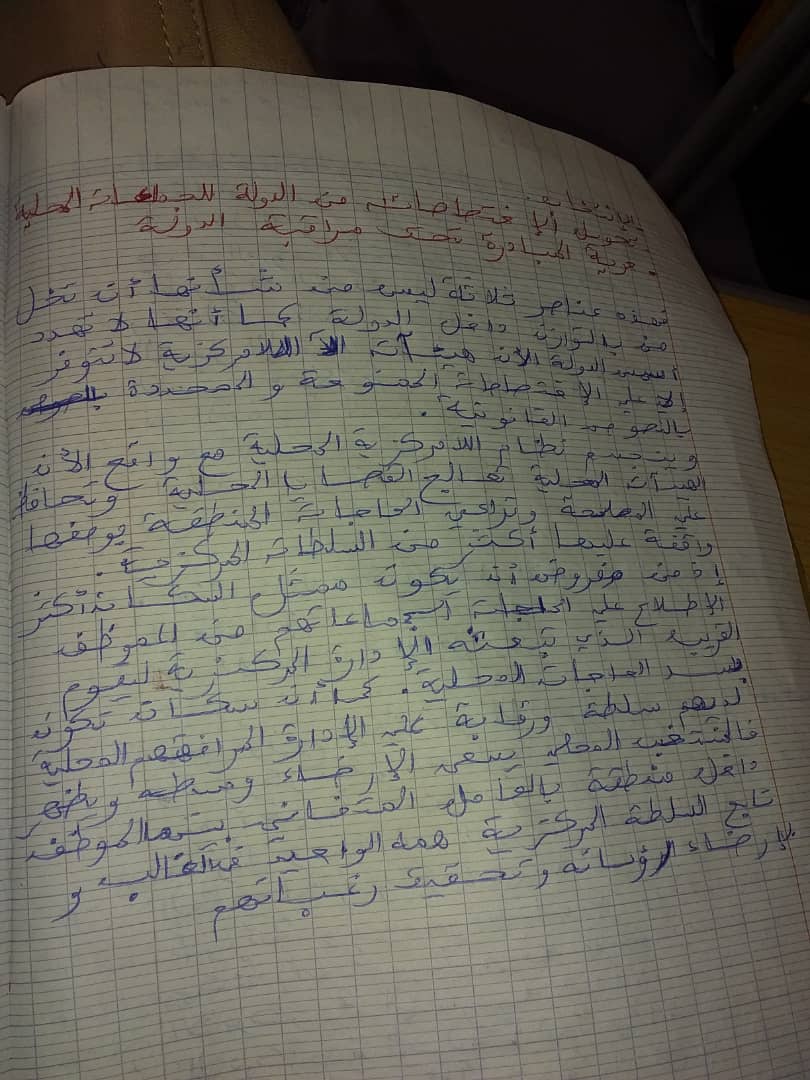 . الإنتخابات
. تحويل الإختصاصات من الدولة للجماعات المحلية
. حرية المبادرة تحت مراقبة الدولة
فهذه عناصر ثلاثة ليس من شأنها أن تخل
من بالتوازن داخل الدولة كما أنها لا تهدد
الدولة لأن هيئات اللامركزية لا تتوفر
إلا على الإختصاصات الممنوحة و المحددة
بالنصوص القانونية .
و ينسجم نظام اللامركزية المحلية مع واقع لأن
الهيئات المحلية تعالج القضايا المحلية وتحافظ
على المصلحة وتراعي الحاجات المنطقة بوصفها
واقفة عليها أكثر من السلطات المركزية .
إذ من مفروض أن يكون ممثل السكان أكثر
الإطلاع على جماعاتهم من الموظف
القريب الذي تبعثه الإدارة المركزية ليقوم
بسد الحاجات المحلية . كما أن سكان تكون
لديهم سلطة ورقابة على الإدارة لمرافقهم المحلية
فالمنتخب المحلي يسعى لإرضاء وسطه ويظهر
داخل منطقة بالعامل المتفاني بينما الموظف
تابع السلطة المركزية همه الواحيد في الغالب و
لإرضاء رؤسائه و تحقيق رغباتهم